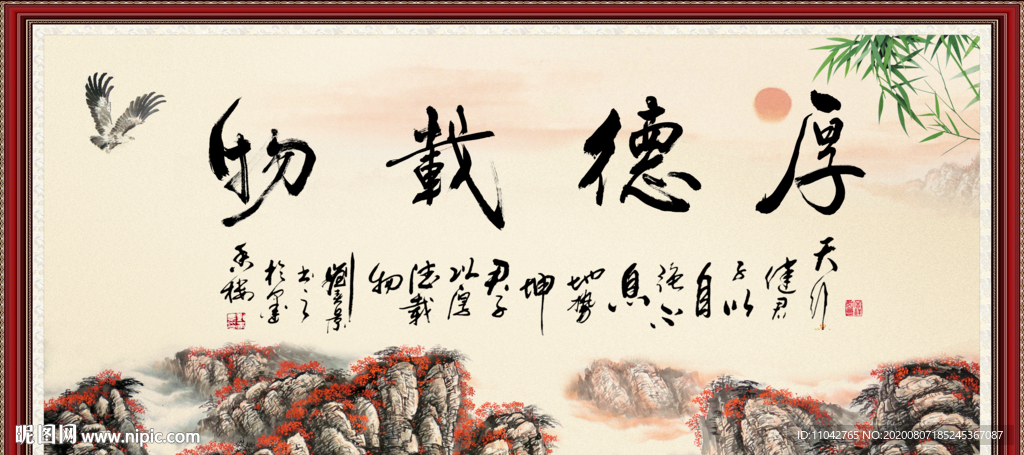 厚德載物
天行健君子以自強不息地勢坤君子以厚德載物
劉景書之於墨香樓
昵图网 www.nipic.com
ID:11042765 NO:20200807185245367087